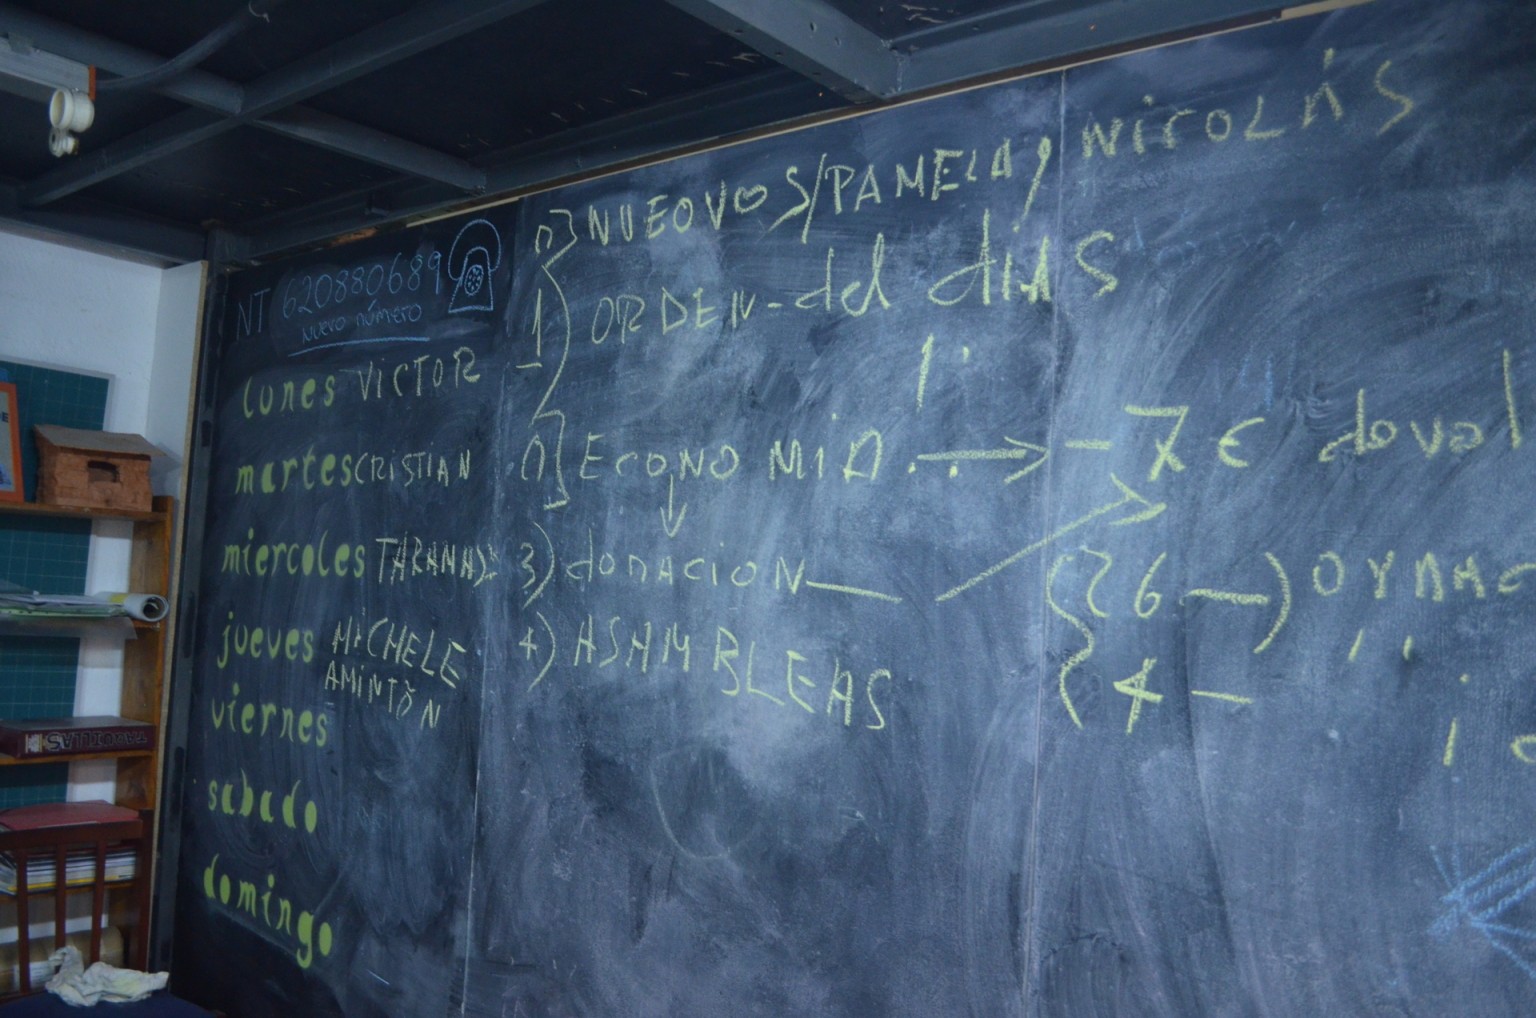 NT 620880689
nuevo número
lunes VICTOR
martes CRISTIAN
miercoles
jueves MICHELE
AMINTÖN
viernes
sabado
domingo
0] NUEOVOS/PAMELA, NICOLÁS
1) ORDEN-del dias
0] ECONOMIA → -7 €
3) dONACION
4) ASAMBLEAS
26 —)
4 —
TAQUILLAS